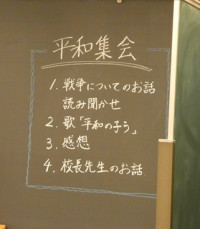 平和集会
1. 戦争についてのお話
読み聞かせ
2. 歌「平和の子う」
3. 感想
4. 校長先生のお話